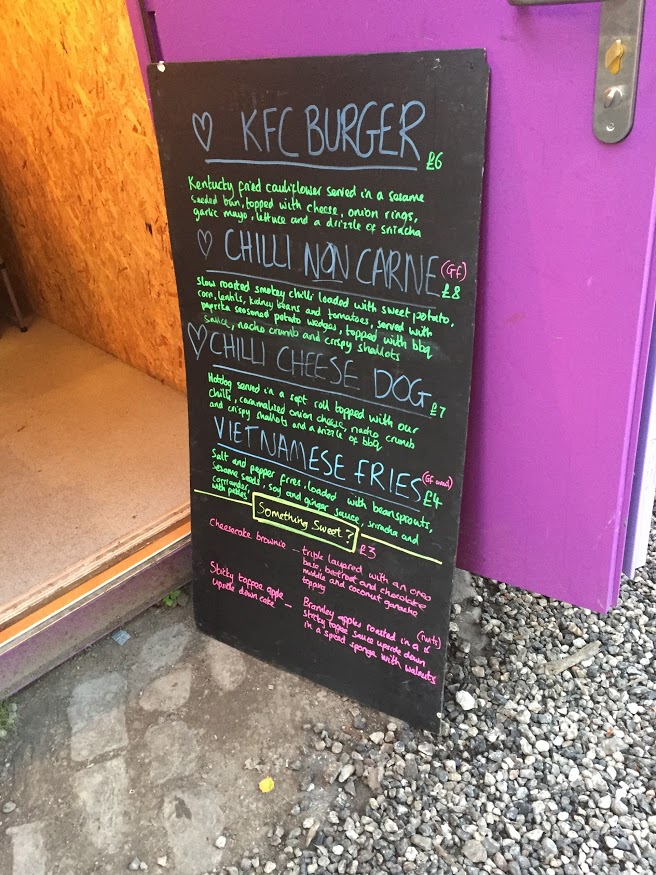 ♡ KFC BURGER £6
Kentucky fried cauliflower served in a sesame
seeded bun, topped with cheese, onion rings,
garlic mayo, lettuce and a drizzle of sriracha
♡ CHILLI NON CARNE (GF) £8
Slow roasted smokey chilli loaded with sweet potato,
corn, lentils, kidney beans and tomatoes, served with
paprika seasoned potato wedges, topped with bbq
sauce, nacho crumb and crispy shallots
♡ CHILLI CHEESE DOG £7
Hotdog served in a soft roll topped with our
chilli, caramalised onion cheese, nacho crumb
and crispy shallots and a drizzle of bbq
VIETNAMESE FRIES (GF avail) £4
Salt and pepper fries, loaded with beansprouts,
sesame seeds, soy and ginger sauce, sriracha and
corriander, with pickles
Something Sweet? £3
Cheesecake brownie - triple layered with an oreo
base, beetroot and chocolate
middle and coconut ganache
topping
Sticky toffee apple
upside down cake -
Bramley apples roasted in a (nuts)
sticky toffee sauce upside down
in a spiced sponge with walnuts